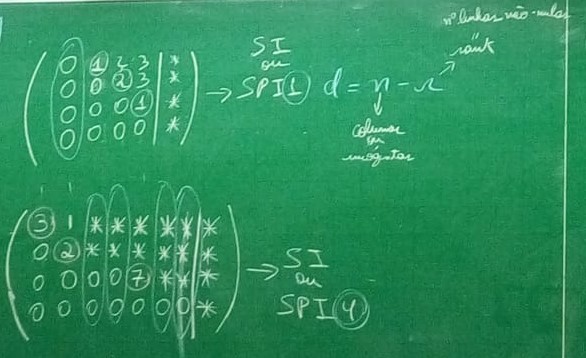 nº linhas não-nulas
rank
0 1 2 3 | *
0 0 2 3 | *
0 0 0 1 | *
0 0 0 0 | *
→ SI
ou
SPI 1
d = n - r
colunas
ou
incógnitas
3 1 * * * * * | *
0 2 * * * * * | *
0 0 0 0 7 * * | *
0 0 0 0 0 0 0 | *
→ SI
ou
SPI 4